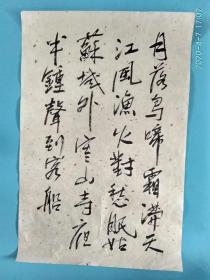 月落烏啼霜滿天
江風漁火對愁眠姑
蘇城外寒山寺夜
半鐘聲到客船
2020-4-7 17:10